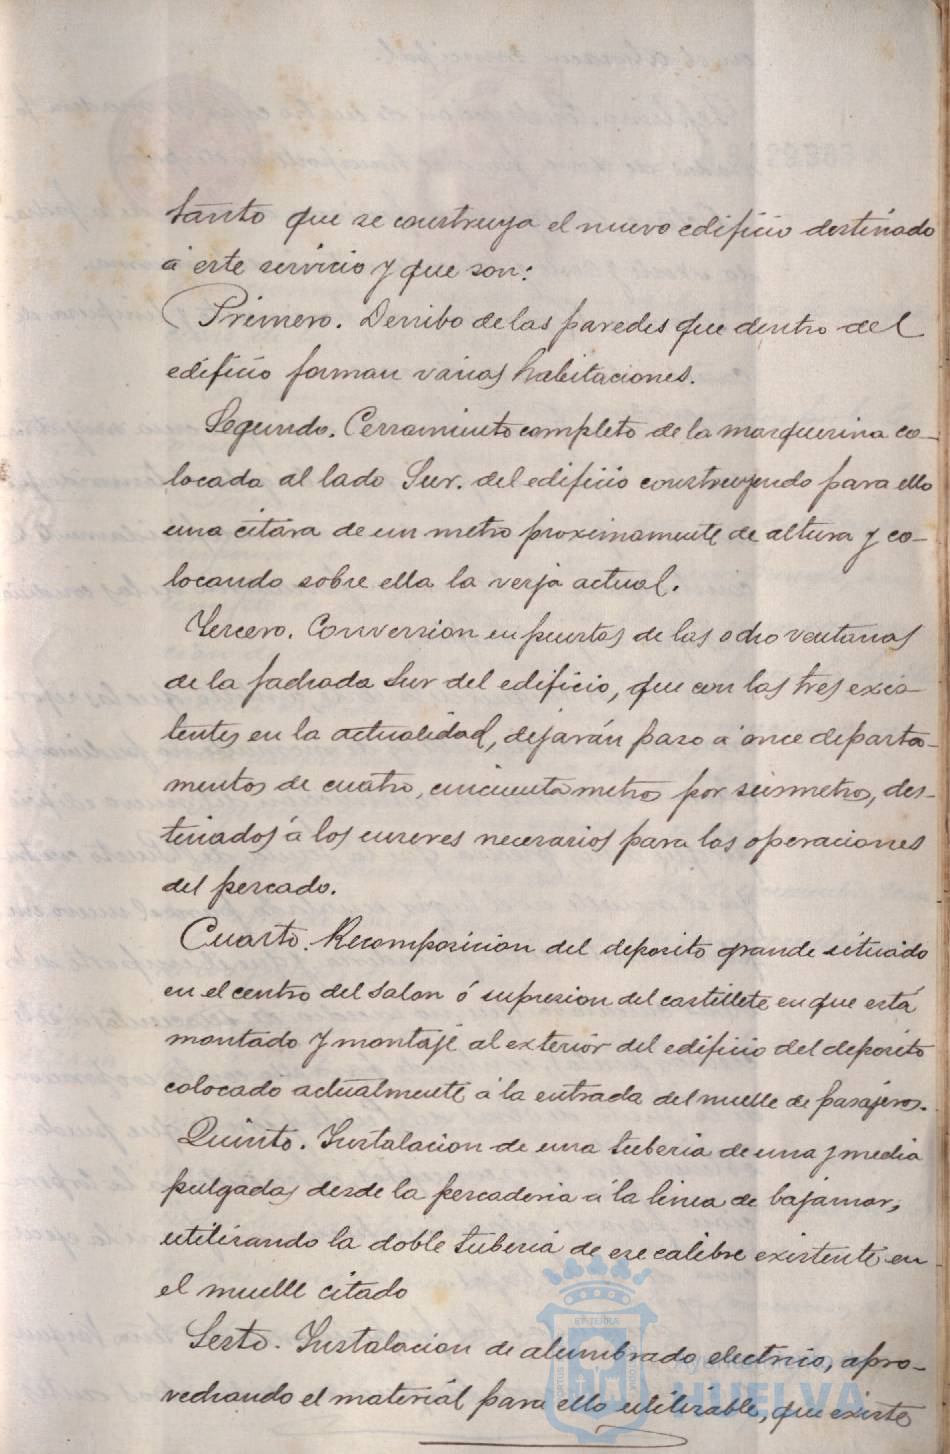 tanto que se construya el nuevo edificio destinado
á este servicio y que son:
Primero. Derribo de las paredes que dentro del
edificio forman várias habitaciones.
Segundo. Cerramiento completo de la marquesina co-
locada al lado Sur. del edificio construyendo para ello
una citara de un metro proximamente de altura y co-
locando sobre ella la verja actual.
Tercero. Conversion en puertas de las ocho ventanas
de la fachada Sur del edificio, que con las tres exis-
tentes en la actualidad, dejarán paso á once departa-
mentos de cuatro, cincuenta metros por seis metros, des-
tinados á los enseres necesarios para las operaciones
del pescado.
Cuarto. Recomposicion del deposito grande situado
en el centro del salon ó supresion del castillete en que está
montado y montaje al exterior del edificio del deposito
colocado actualmente á la entrada del muelle de pasajeros.
Quinto. Instalacion de una tuberia de una y media
pulgadas desde la pescaderia á la linea de bajamar,
utilisando la doble tuberia de ese calibre existente en
el muelle citado
Sesto. Instalacion de alumbrado electrico, apro-
vechando el material para ello utilizable, que existe
Ayuntamiento de
HUELVA